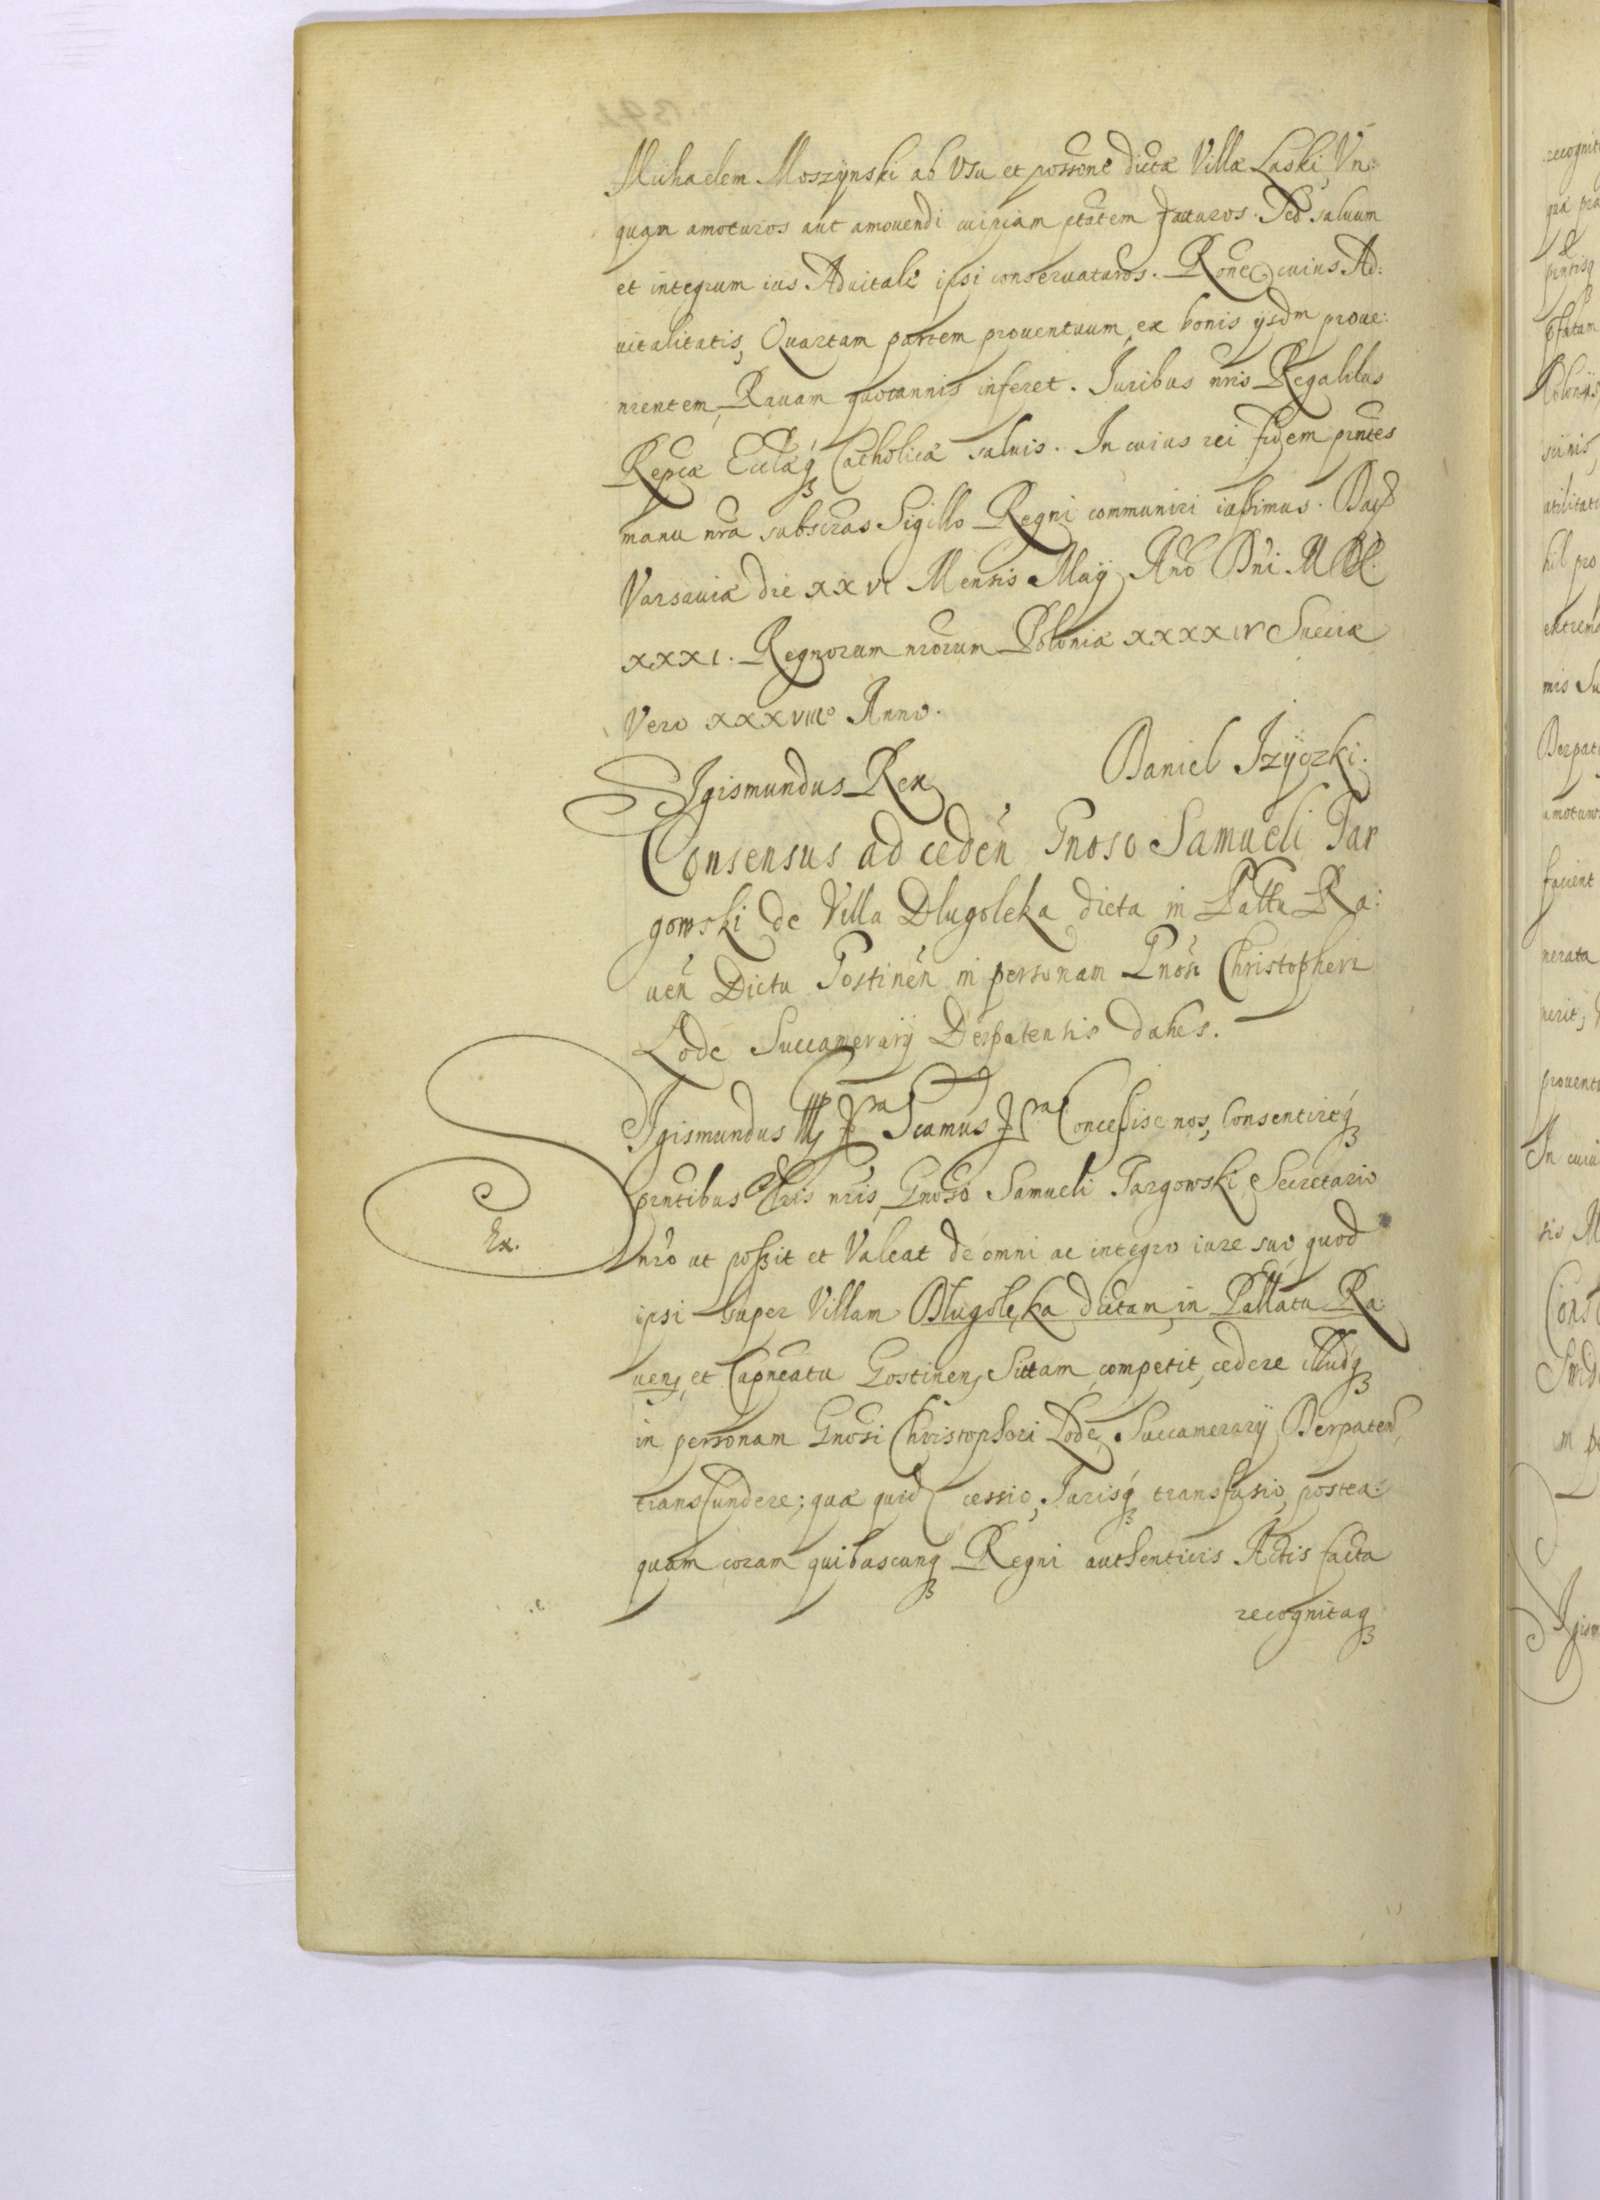 Michaelem Moszÿnski ab Vsu et possone dictæ Villæ Laski, Vn:
quam amoturos aut amouendi cuipiam ptatem daturos. Sed saluum
et integrum ius Aduitale ipsi conseruaturos. Rone cuius Ad:
uitalitatis, Quartam partem prouentuum, ex bonis ysdm proue:
nientem, Rauam quotannis inferet. Iuribus nris Regalibus
Reipcæ Ecclæq Catholicæ saluis. In cuius rei fidem pntes
manu nra subscras Sigillo Regni communiri iussimus. Dat
Varsauiæ die XXVI Mensis Maÿ Ano Dni MDC
XXXI. Regnorum nrorum Poloniæ XXXXIV Sueciæ
Vero XXXVIIIo Anno.
Sigismundus Rex Daniel Izÿczki.
Consensus ad ceden Gnoso Samueli Tar
gowski de Villa Dlugoleka dicta in Pallu Ra:
uen Dictu Gostinen in personam Gnosi Christopheri
Lode Succamerarÿ Derpatensis
Sigismundus III Scamus Concessisse nos, Consentireq
pntibus Lris nris, Gnoso Samueli Targowski, Secretario
Ex.
nro ut possit et Valeat de omni ac integro iure suo, quod
ipsi super Villam Dlugolęka dictam, in Pallatu Ra
uen, et Capneatu Gostinen, Sittam, competit, cedere illudq
in personam Gnosi Christophori Lode Succamerarÿ Derpaten,
transfundere; quæ quid cessio, Iurisq transfusio, postea:
quam coram quibuscunq Regni authenticis Actis facta
recognitaq